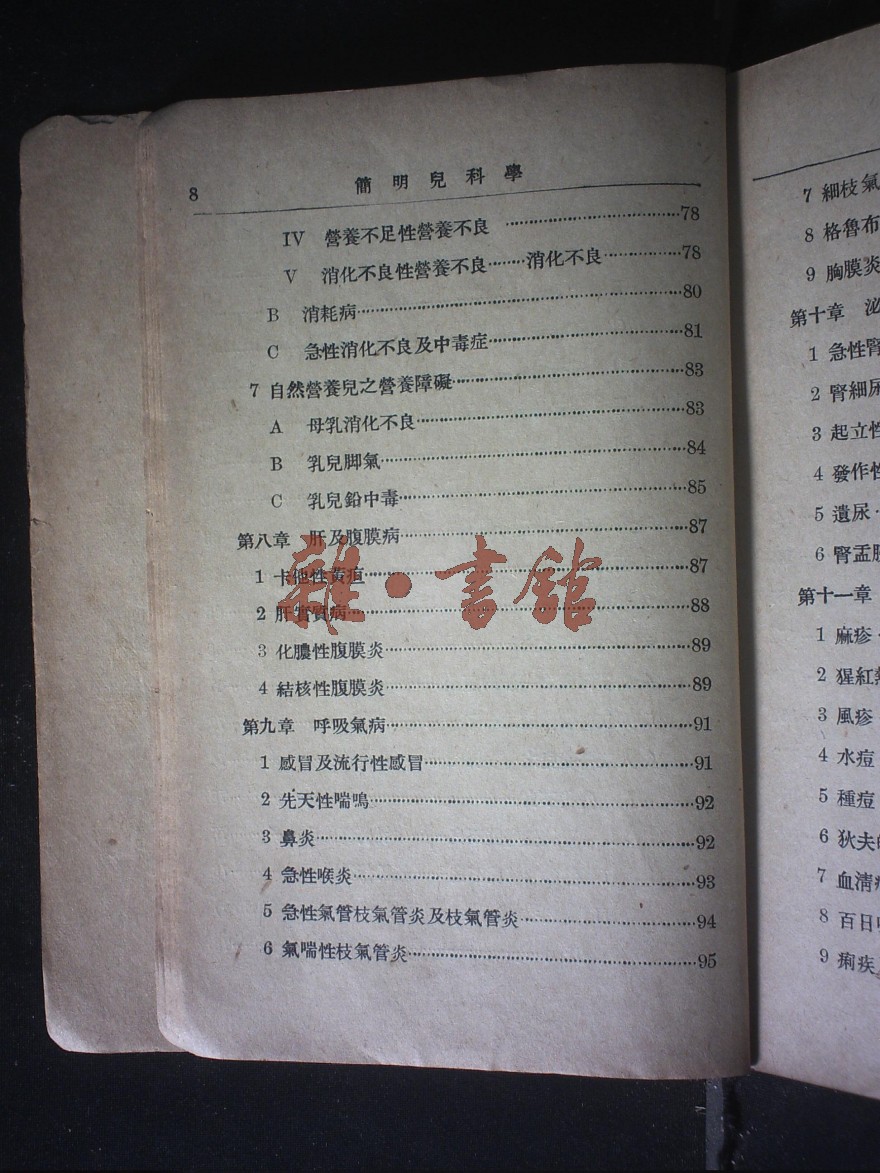 8 簡明兒科學
IV 營養不足性營養不良 ……………………78
V 消化不良性營養不良……消化不良…………78
B 消耗病………………………………………80
C 急性消化不良及中毒症……………………81
7 自然營養兒之營養障礙………………………83
A 母乳消化不良………………………………83
B 乳兒脚氣……………………………………84
C 乳兒鉛中毒…………………………………85
第八章 肝及腹膜病………………………………87
1 卡他性黃疸……………………………………87
2 肝實質病………………………………………88
3 化膿性腹膜炎…………………………………89
4 結核性腹膜炎…………………………………89
第九章 呼吸氣病…………………………………91
1 感冒及流行性感冒……………………………91
2 先天性喘鳴……………………………………92
3 鼻炎……………………………………………92
4 急性喉炎………………………………………93
5 急性氣管枝氣管炎及枝氣管炎………………94
6 氣喘性枝氣管炎………………………………95
雜·書館
7 細枝氣
8 格魯布
9 胸膜炎
第十章 泌
1 急性腎
2 腎細尿
3 起立性
4 發作性
5 遺尿
6 腎盂
第十一章
1 麻疹
2 猩紅熱
3 風疹
4 水痘
5 種痘
6 狄夫的
7 血清病
8 百日
9 痢疾